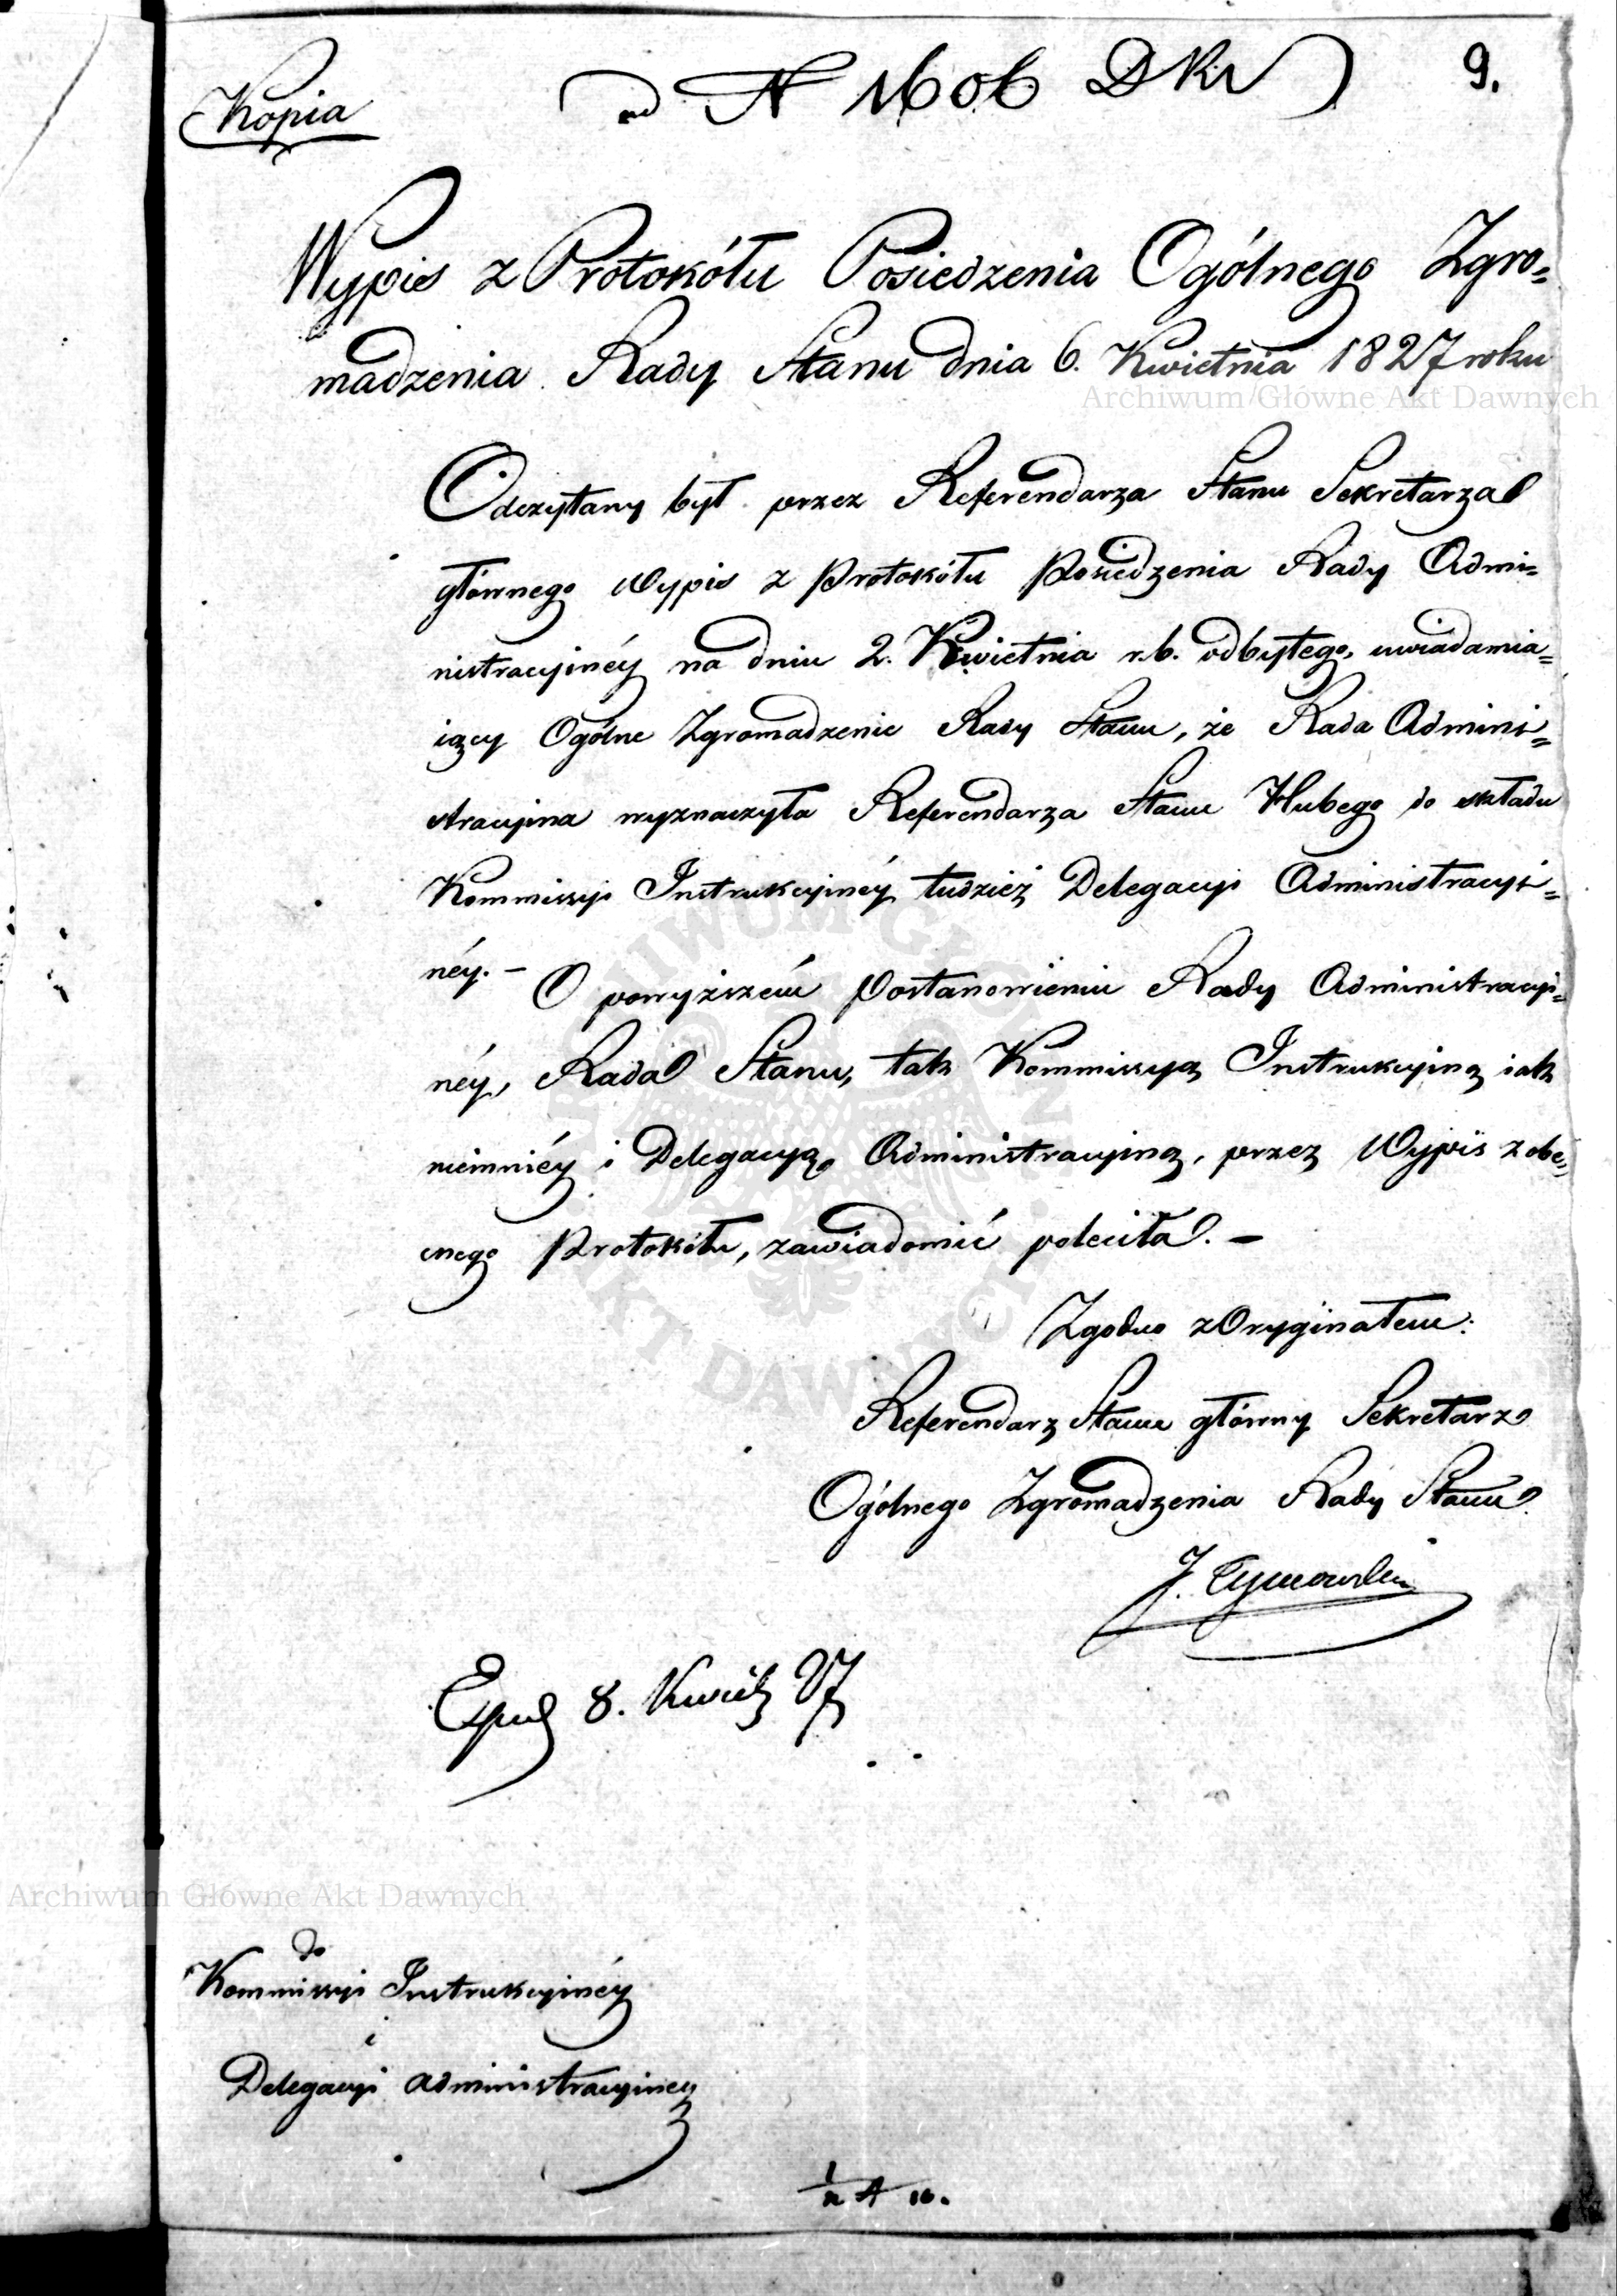 Kopia
ad N 1606 DKr
9.
Wypis z Protokółu Posiedzenia Ogólnego Zgro=
madzenia Rady Stanu dnia 6. Kwietnia 1827 roku
Archiwum Główne Akt Dawnych
Odczytany był przez Referendarza Stanu Sekretarza
głównego Wypis z Protokółu Posiedzenia Rady Admi=
nistracyinéy na dniu 2. Kwietnia r.b. odbytego, uwiadamia=
iący Ogólne Zgromadzenie Rady Stanu, że Rada Admini=
stracyina wyznaczyła Referendarza Stanu Hubego do składu
Kommissyi Instrukcyinéy tudzież Delegacyi Administracyi=
néy. –
O powyższém Postanowieniu Rady Administracyi=
néy, Rada Stanu, tak Kommissyą Instrukcyiną iak
niemniéy i Delegacyą Administracyiną, przez Wypis z obe=
cnego Protokółu, zawiadomić poleciła. –
Zgodno z Oryginałem:
Referendarz Stanu główny Sekretarz
Ogólnego Zgromadzenia Rady Stanu
J. Tymowski
8. Kwiet 27
Archiwum Główne Akt Dawnych
do
Kommissyi Instrukcyinéy
i
Delegacyi Administracyiney
ARCHIWUM GŁÓWNE AKT DAWNYCH